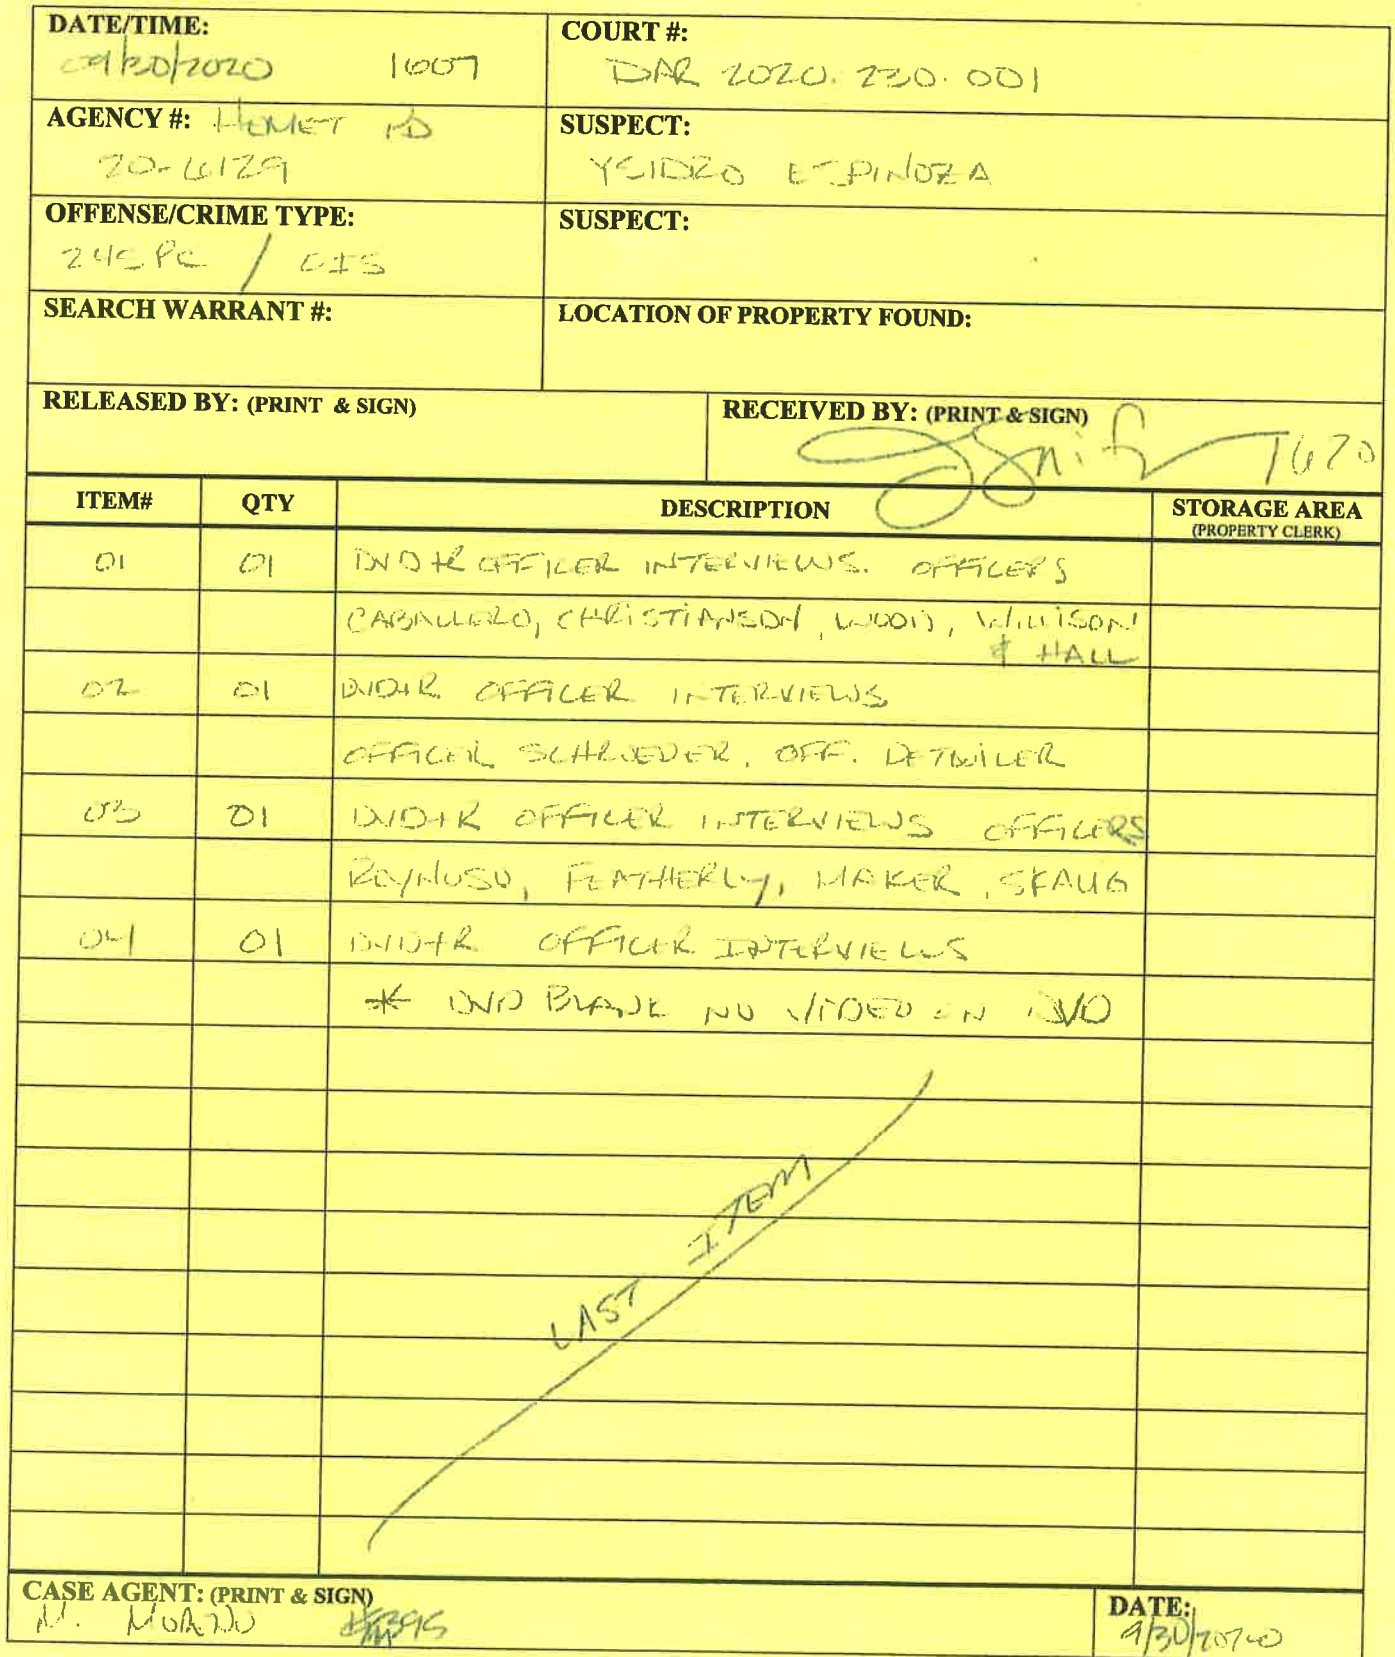 DATE/TIME:
09/30/2020 1607
COURT #:
DAR 2020.230.001
AGENCY #: HEMET PD
20-6129
SUSPECT:
YSIDRO ESPINOZA
OFFENSE/CRIME TYPE:
245 PC / OIS
SUSPECT:
SEARCH WARRANT #:
LOCATION OF PROPERTY FOUND:
RELEASED BY: (PRINT & SIGN)
RECEIVED BY: (PRINT & SIGN)
1620
ITEM# QTY DESCRIPTION STORAGE AREA
(PROPERTY CLERK)
01 01 DVD+R OFFICER INTERVIEWS. OFFICERS
CABALLERO, CHRISTIANSON, WOOD, WILLISON
& HALL
02 01 DVD+R OFFICER INTERVIEWS
OFFICER SCHROEDER, OFF. DETWILER
03 01 DVD+R OFFICER INTERVIEWS OFFICERS
REYNOSO, FEATHERLY, MAKER, SKAUG
04 01 DVD+R OFFICER INTERVIEWS
* DVD BLANK NO VIDEO ON DVD
LAST ITEM
CASE AGENT: (PRINT & SIGN)
DATE:
9/30/2020